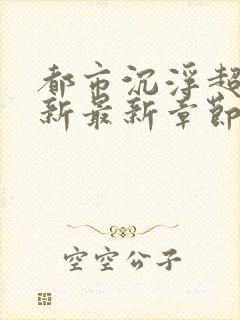 都市沉浮超
新最新章節
空空公子